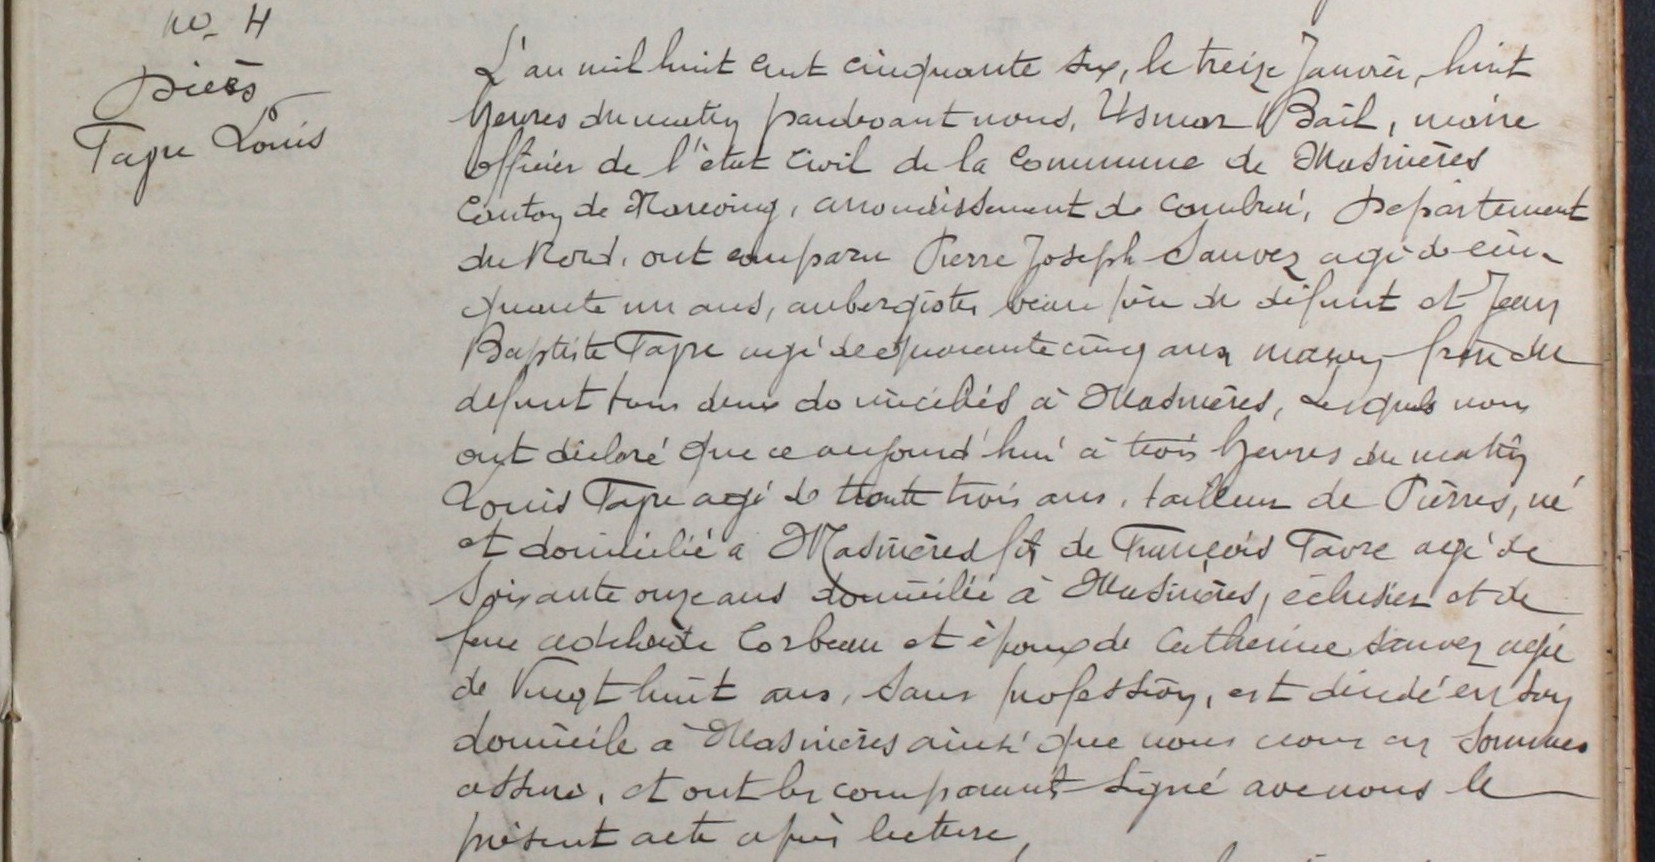 No. 4
Décès
Tapre Louis
L'an mil huit cent cinquante six, le treize Janvier, huit
heures du matin pardevant nous, Usmar Bail, maire
officier de l'état civil de la commune de Masnières
canton de Marcoing, arrondissement de Cambrai, Département
du Nord, ont comparu Pierre Joseph Sauvez agé de cin-
quante un ans, aubergiste, beau père du défunt et Jean
Baptiste Tapre agé de quarante cinq ans maçon frère du
defunt tous deux domiciliés à Masnières, Lesquels nous
ont déclaré que ce aujourd'hui à trois heures du matin
Louis Tapre agé de trente trois ans, tailleur de Pierres, né
et domicilié a Masnières fils de François Tavre agé de
Soixante onze ans domicilié à Masnières, éclusier et de
feue adelaide Corbeau et époux de Catherine Sauvez agée
de Vingt huit ans, Sans profession, est décédé en son
domicile à Masnières ainsi que nous nous en Sommes
assuré, et ont les comparants Signé avec nous le
présent acte après lecture,